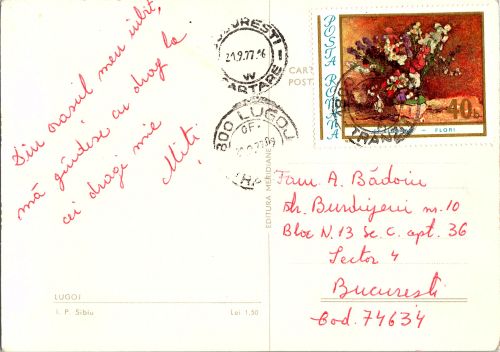 Din orașul meu iubit,
mă gîndesc cu drag la
cei dragi mie
Miti
LUGOJ
I. P. Sibiu
Lei 1,50
EDITURA MERIDIANE
BUCUREȘTI
21.9.77.16
CARTARE
LUGOJ
OF.
CART
POȘT
POSTA ROMANA
40b
FLORI
Fam A. Bădoiu
str. Burdujeni nr. 10
Bloc N. 13 Sc. C. apt. 36
Sector 4
București
Cod. 74634